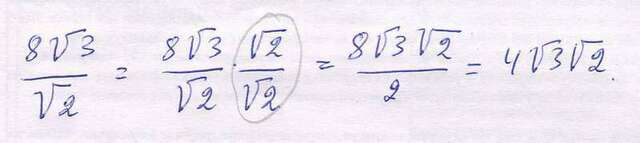 8√3/√2 = 8√3/√2 · √2/√2 = 8√3√2/2 = 4√3√2.